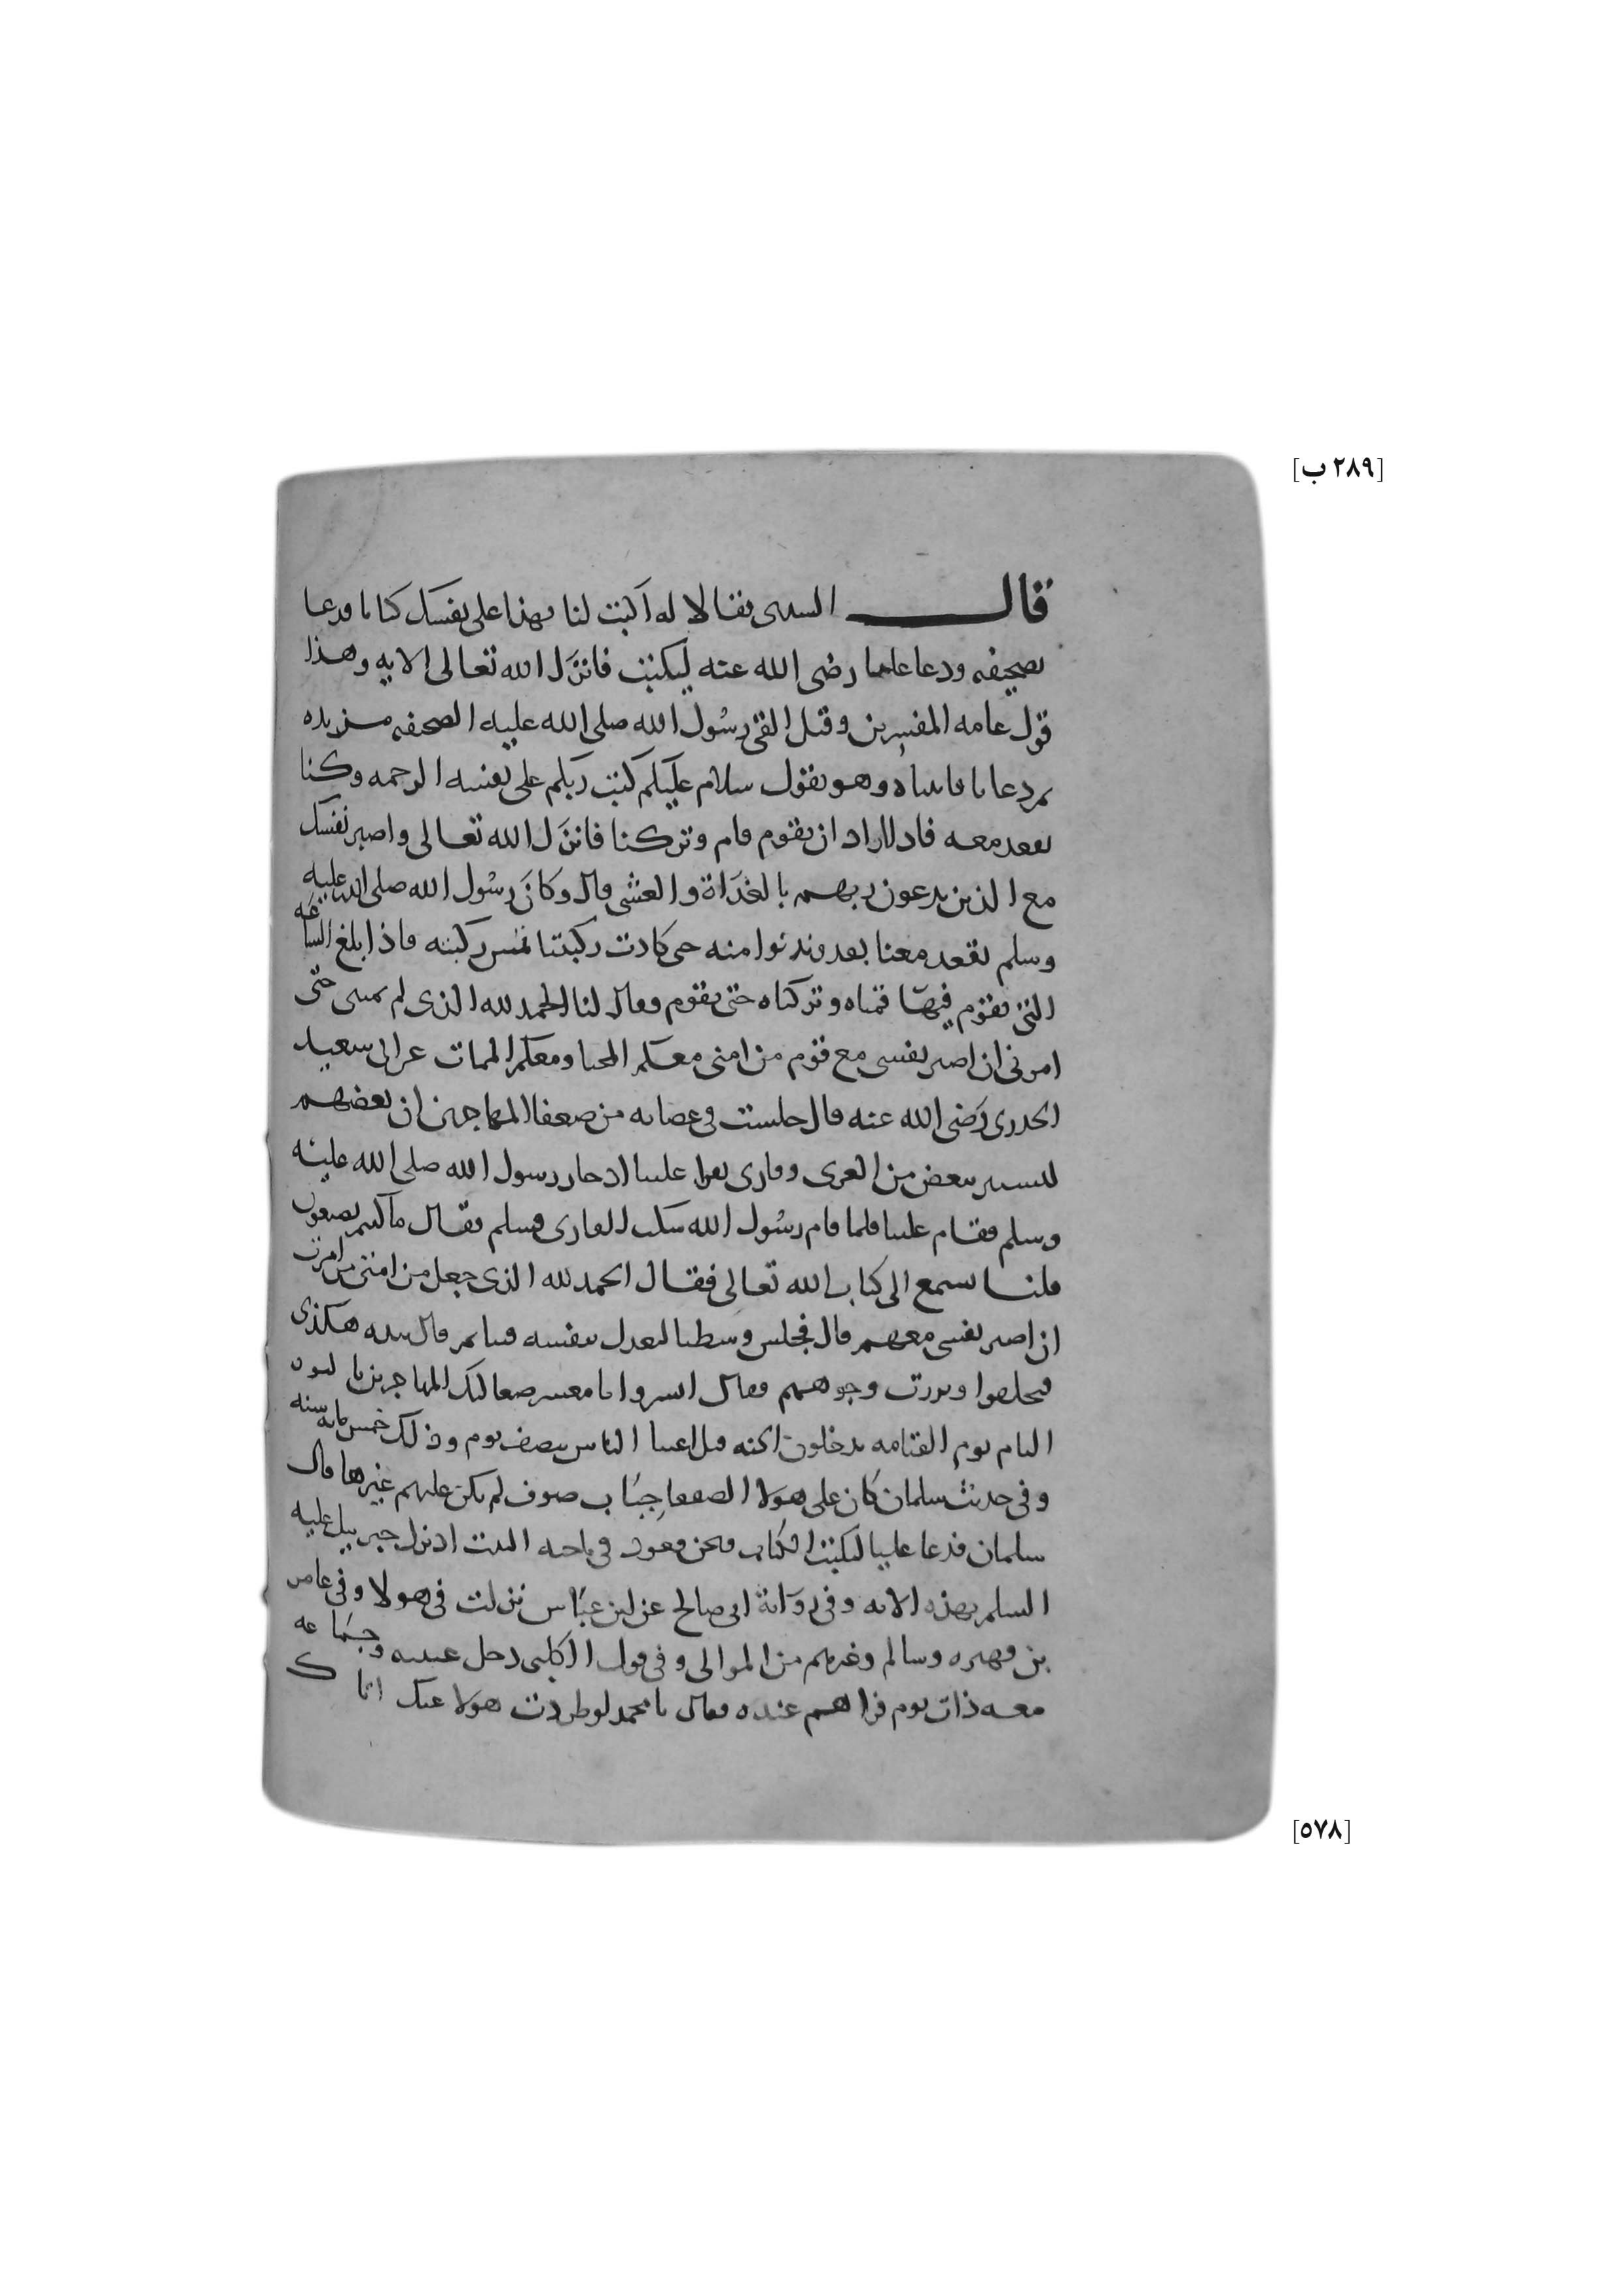 [٢٨٩ ب]
قال السدى فقالا له اكتب لنا بهذا على نفسك كتابا فدعا
بصحيفه ودعا عليا رضى الله عنه ليكتب فانزل الله تعالى الايه وهذا
قول عامه المفسرين وقيل القى رسول الله صلى الله عليه الصحيفه من يده
ثم دعانا فاتيناه وهو يقول سلام عليكم كتب ربكم على نفسه الرحمه وكنا
نقعد معه فاذا اراد ان يقوم قام وتركنا فانزل الله تعالى واصبر نفسك
مع الذين يدعون ربهم بالغداة والعشى قال وكان رسول الله صلى الله عليه
وسلم يقعد معنا بعد وندنوا منه حتى كادت ركبتنا تمس ركبته فاذا بلغ الساعه
التى يقوم فيها قمناه وتركناه حتى يقوم وقال لنا الحمد لله الذى لم يمتنى حتى
امرنى ان اصبر نفسى مع قوم من امتى معكم المحيا ومعكم الممات عن ابى سعيد
الخدرى رضى الله عنه قال جلست فى عصابه من ضعفا المهاجرين ان بعضهم
ليستتر ببعض من العرى وقارى يقرا علينا اذ جا رسول الله صلى الله عليه
وسلم فقام علينا فلما قام رسول الله سكت القارى فسلم فقال ما كنتم تصنعون
قلنا نسمع الى كتاب الله تعالى فقال الحمد لله الذى جعل من امتى من امرت
ان اصبر نفسى معهم قال فجلس وسطنا ليعدل بنفسه فينا ثم قال بيده هكذى
فتحلقوا وبرزت وجوههم فقال ابشروا يا معشر صعاليك المهاجرين بالنور
التام يوم القيامه تدخلون الجنه قبل اغنيا الناس بنصف يوم وذلك خمس مايه سنه
وفى حديث سلمان كان على هولا الضعفا جباب صوف لم يكن عليهم غيرها قال
سلمان فدعا عليا ليكتب الكتاب ونحن قعود فى ناحيه البيت اذ نزل جبريل عليه
السلم بهذه الايه وفى رواية ابى صالح عن ابن عباس نزلت فى هولا وفى عامر
بن فهيره وسالم وغيرهم من الموالى وفى قول الكلبى دخل عيينه وجماعه
معه ذات يوم فراهم عنده فقال يا محمد لو طردت هولا عنك اتاك
[٥٧٨]